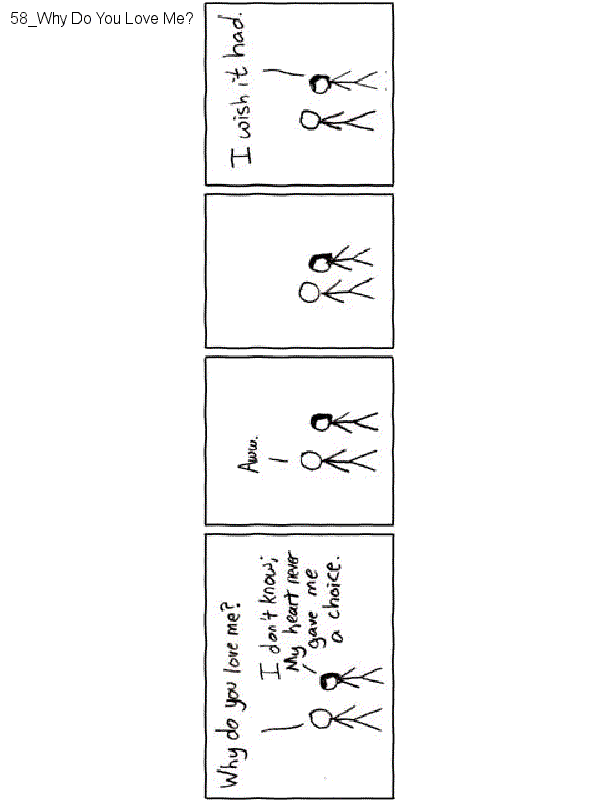 58_Why Do You Love Me?
Why do you love me?
I don't know;
My heart never
gave me
a choice.
Aww.
I wish it had.